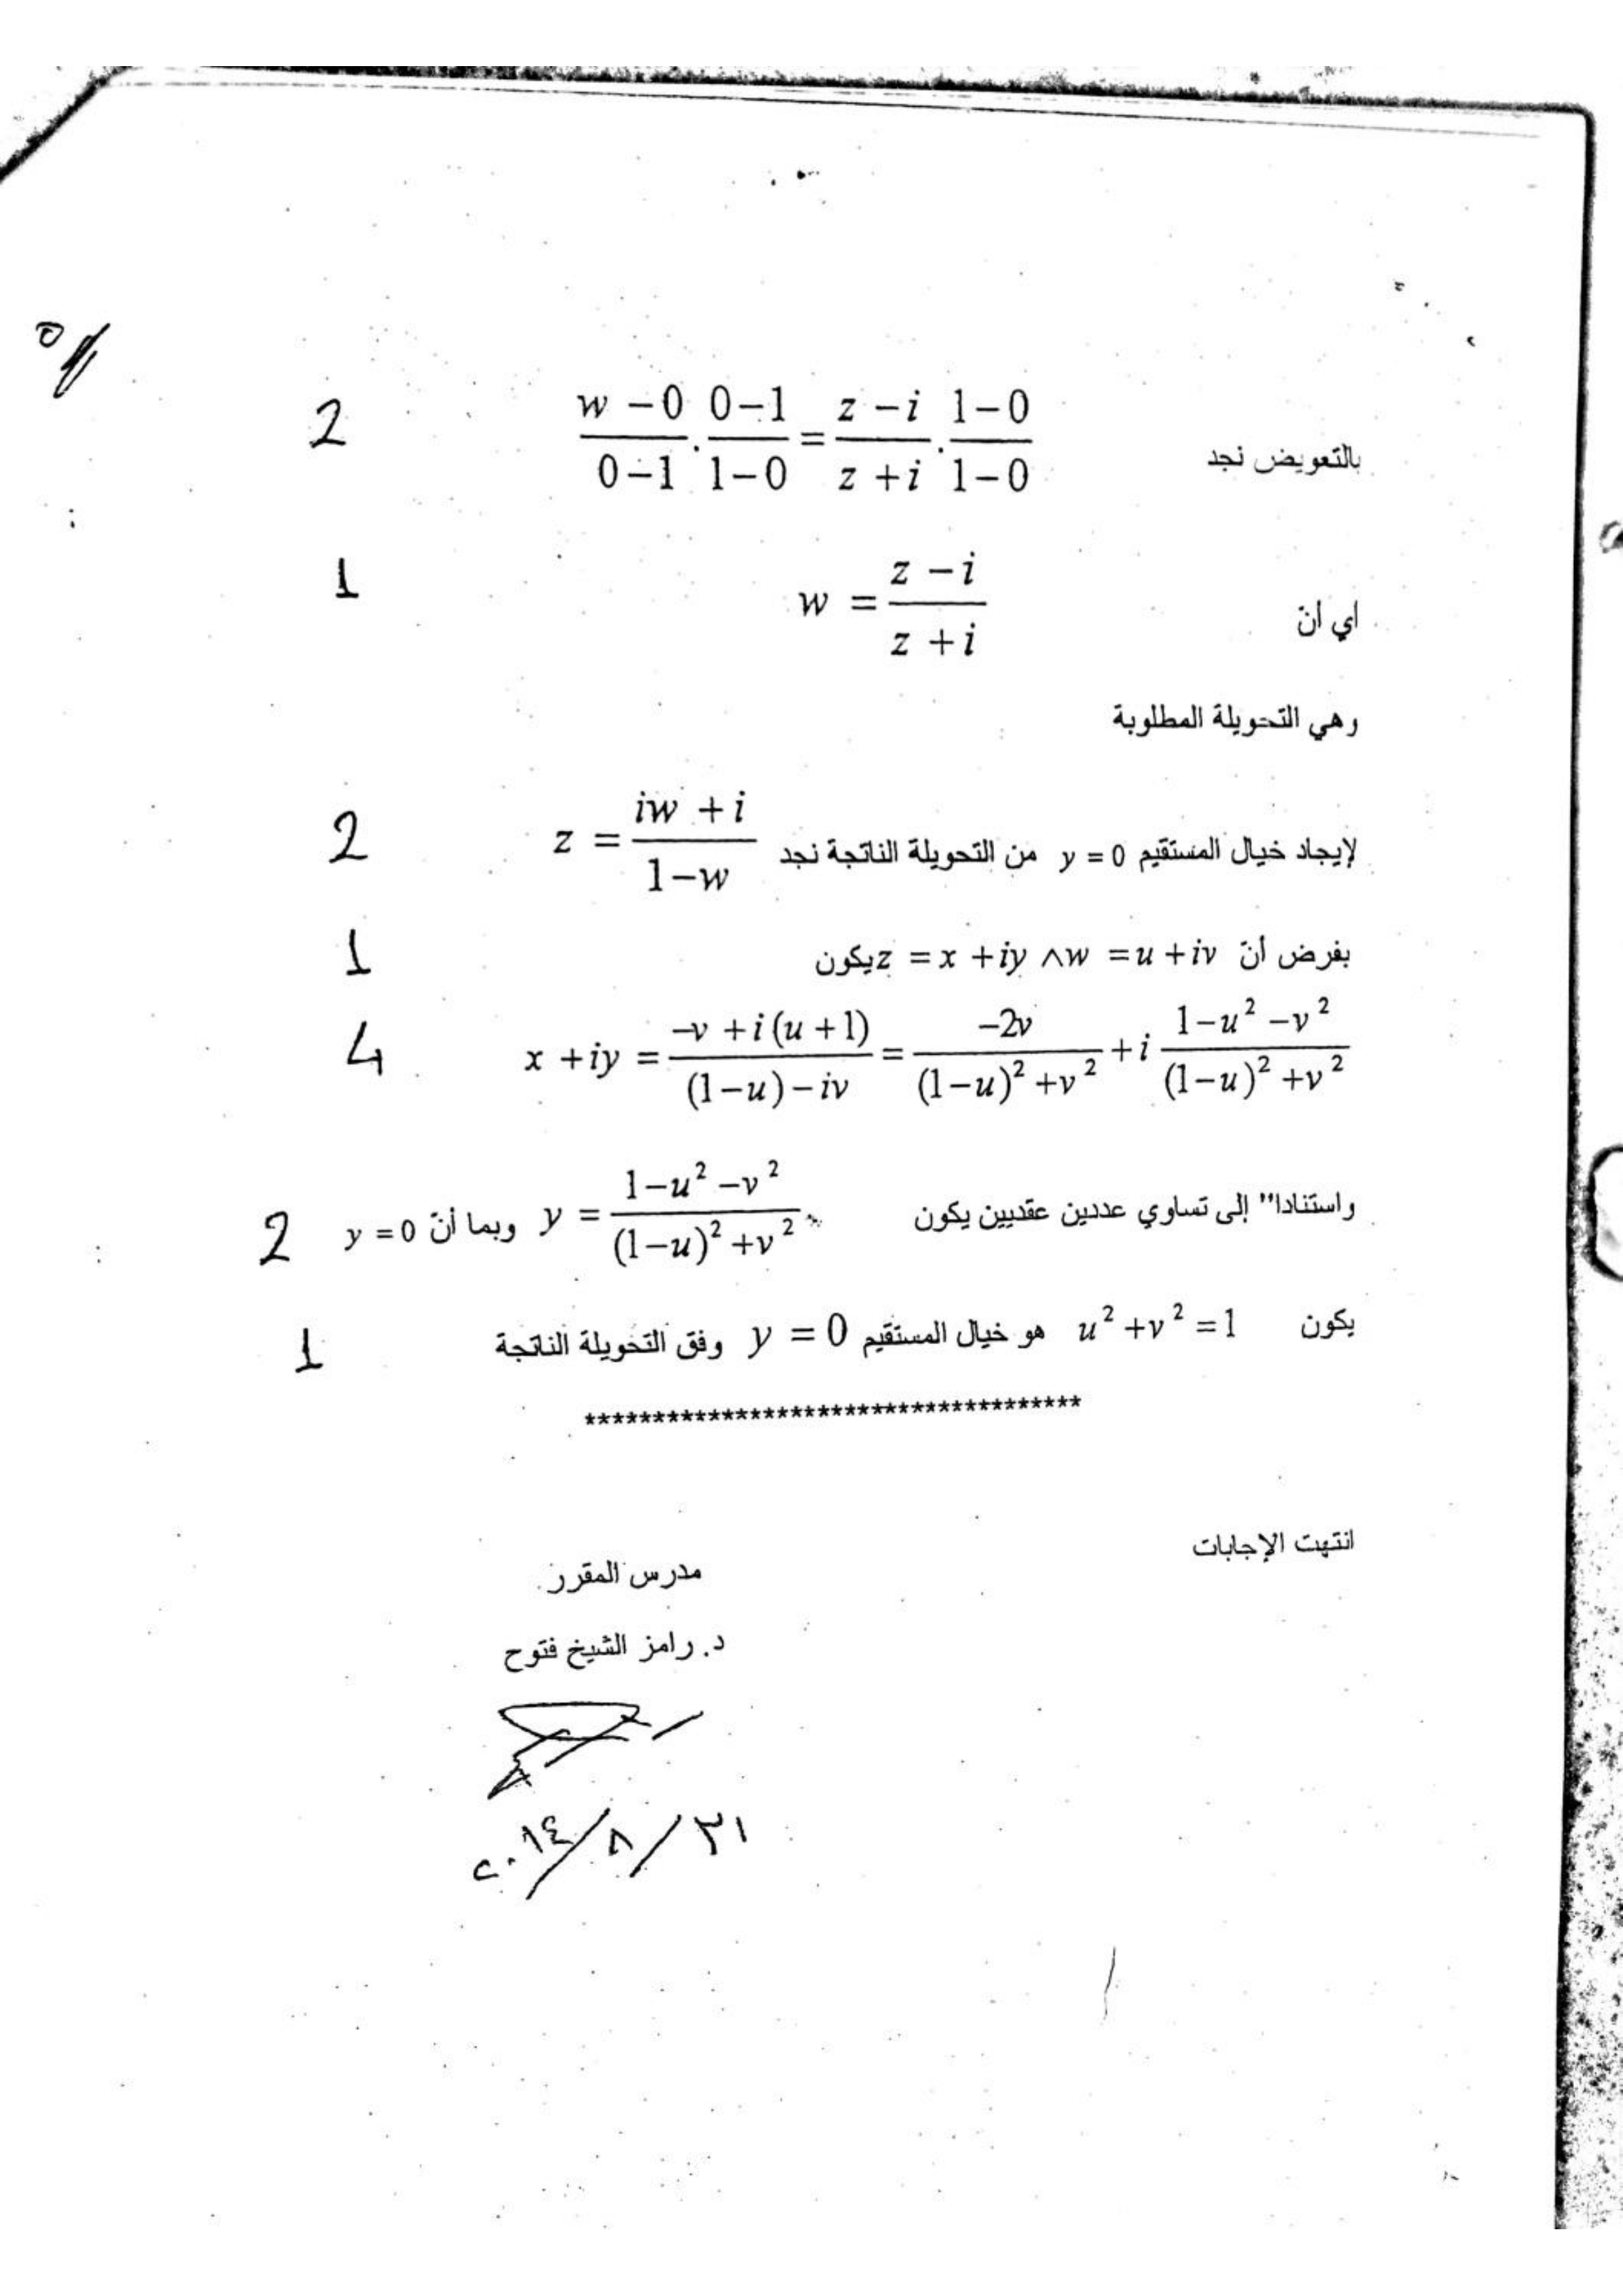 بالتعويض نجد \frac{w-0}{0-1} \cdot \frac{0-1}{1-0} = \frac{z-i}{z+i} \cdot \frac{1-0}{1-0} 2
اي انّ w = \frac{z-i}{z+i} 1
وهي التحويلة المطلوبة
لإيجاد خيال المستقيم y = 0 من التحويلة الناتجة نجد z = \frac{iw+i}{1-w} 2
بفرض أنّ z = x + iy ∧ w = u + iv يكون 1
x + iy = \frac{-v+i(u+1)}{(1-u)-iv} = \frac{-2v}{(1-u)^2+v^2} + i \frac{1-u^2-v^2}{(1-u)^2+v^2} 4
واستنادا" إلى تساوي عددين عقديين يكون y = \frac{1-u^2-v^2}{(1-u)^2+v^2} وبما أنّ y = 0 2
يكون u^2 + v^2 = 1 هو خيال المستقيم y = 0 وفق التحويلة الناتجة 1
************************************
انتهت الإجابات
مدرس المقرر
د. رامز الشيخ فتوح
٣١/٨/٢٠١٤